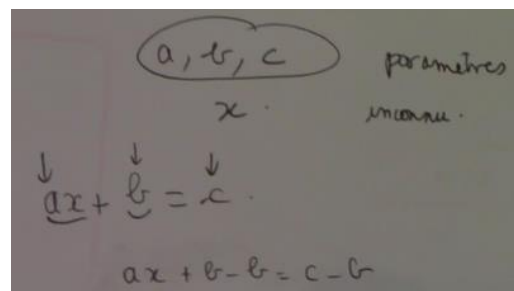 a, b, c paramètres
x. inconnu.
ax + b = c.
ax + b - b = c - b